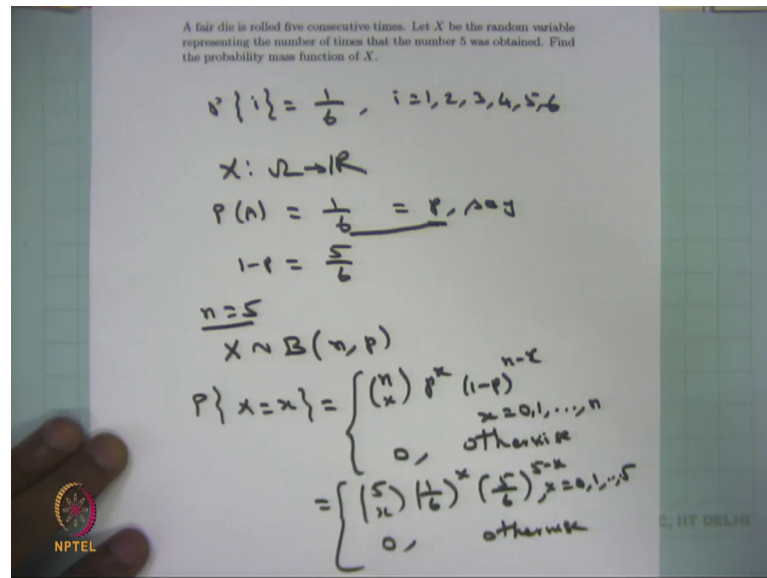 A fair die is rolled five consecutive times. Let X be the random variable
representing the number of times that the number 5 was obtained. Find
the probability mass function of X.
P{i} = 1/6, i=1,2,3,4,5,6
X: Ω→ℝ
P(A) = 1/6 = p, say
1-p = 5/6
n=5
X ~ B(n,p)
P{X=x} = { (n x) p^x (1-p)^{n-x}
x=0,1,...,n
0, otherwise
= { (5 x) (1/6)^x (5/6)^{5-x}, x=0,1,...,5
0, otherwise
C, IIT DELHI
NPTEL